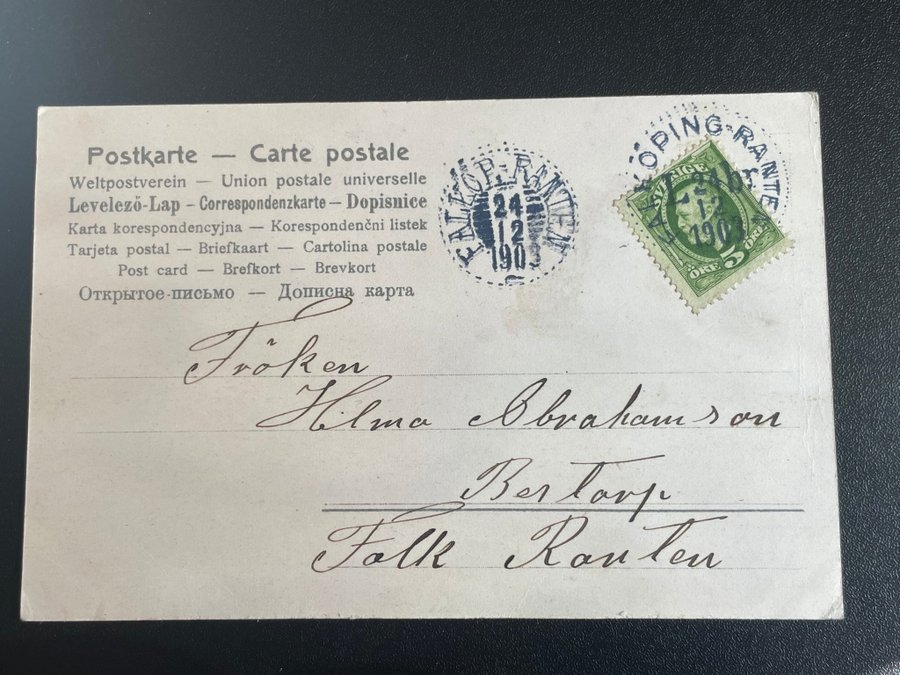 Postkarte — Carte postale
Weltpostverein — Union postale universelle
Levelező-Lap — Correspondenzkarte — Dopisnice
Karta korespondencyjna — Korespondenční listek
Tarjeta postal — Briefkaart — Cartolina postale
Post card — Brefkort — Brevkort
Открытое-письмо — Дописна карта
FALKÖP-RANTEN
24
12
1903
KÖPING-RANTEN
24
12
1903
SVERIGE
5
ÖRE
ÖRE
Fröken
Hilma Abrahamson
Bertorp
Falk Ranten